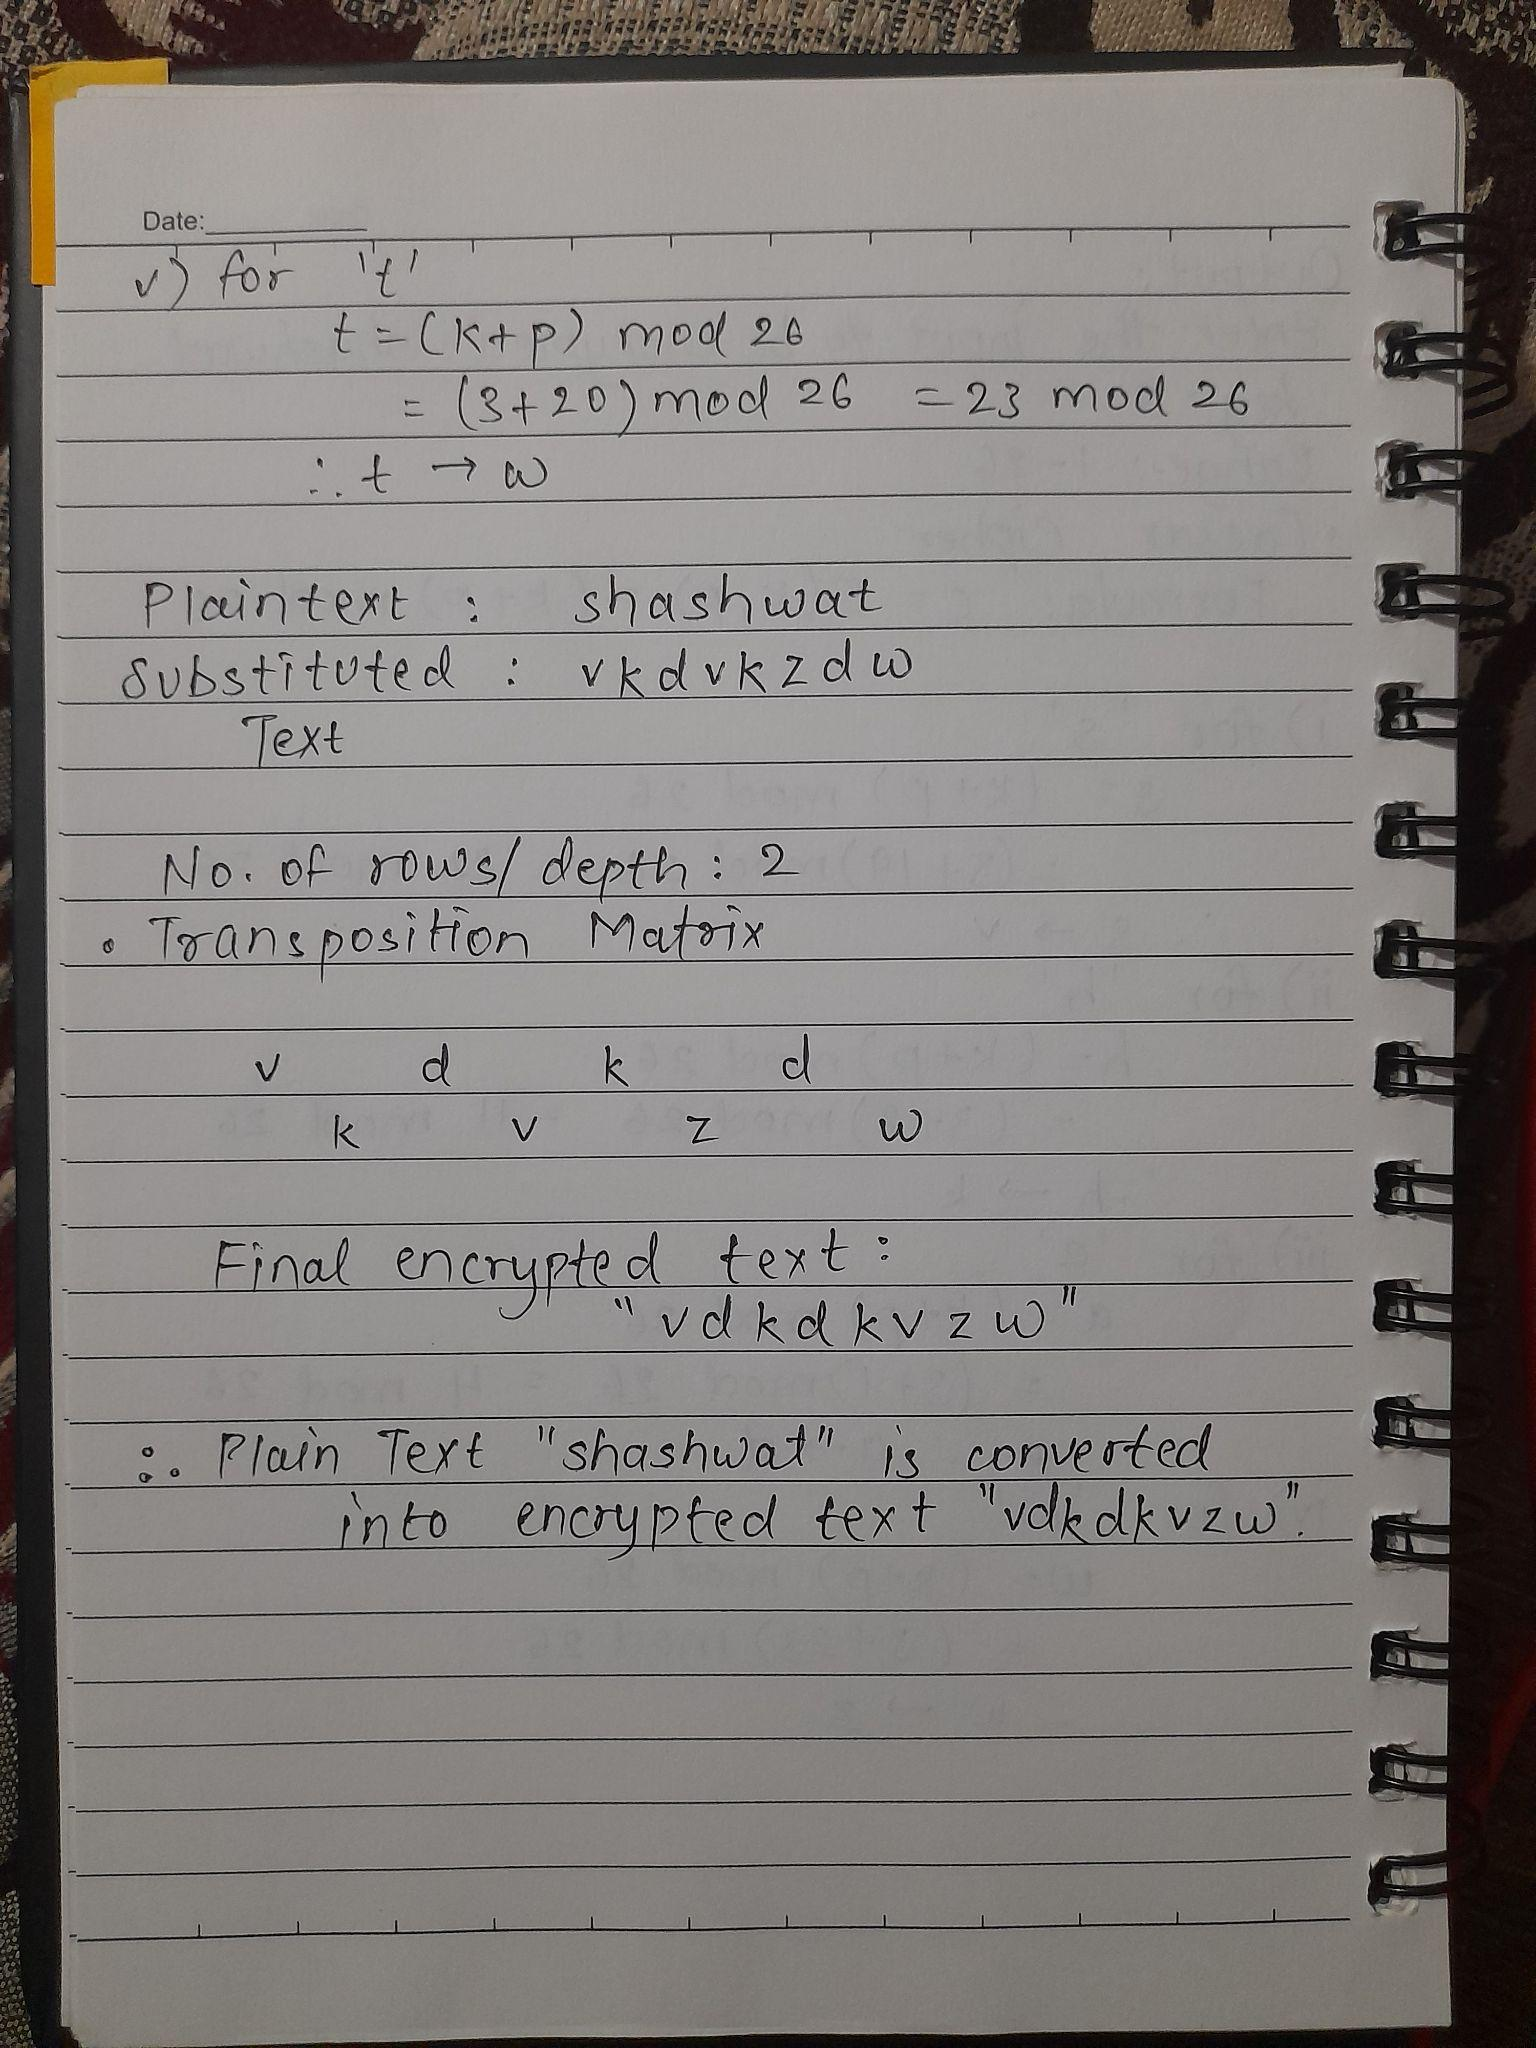 Date:
v) for 't'
t = (k+p) mod 26
= (3+20) mod 26 = 23 mod 26
∴ t → w
Plaintext : shashwat
Substituted : vkdvkzdw
Text
No. of rows/ depth : 2
• Transposition Matrix
v d k d
k v z w
Final encrypted text :
"vdkdkvzw"
∴ Plain Text "shashwat" is converted
into encrypted text "vdkdkvzw".